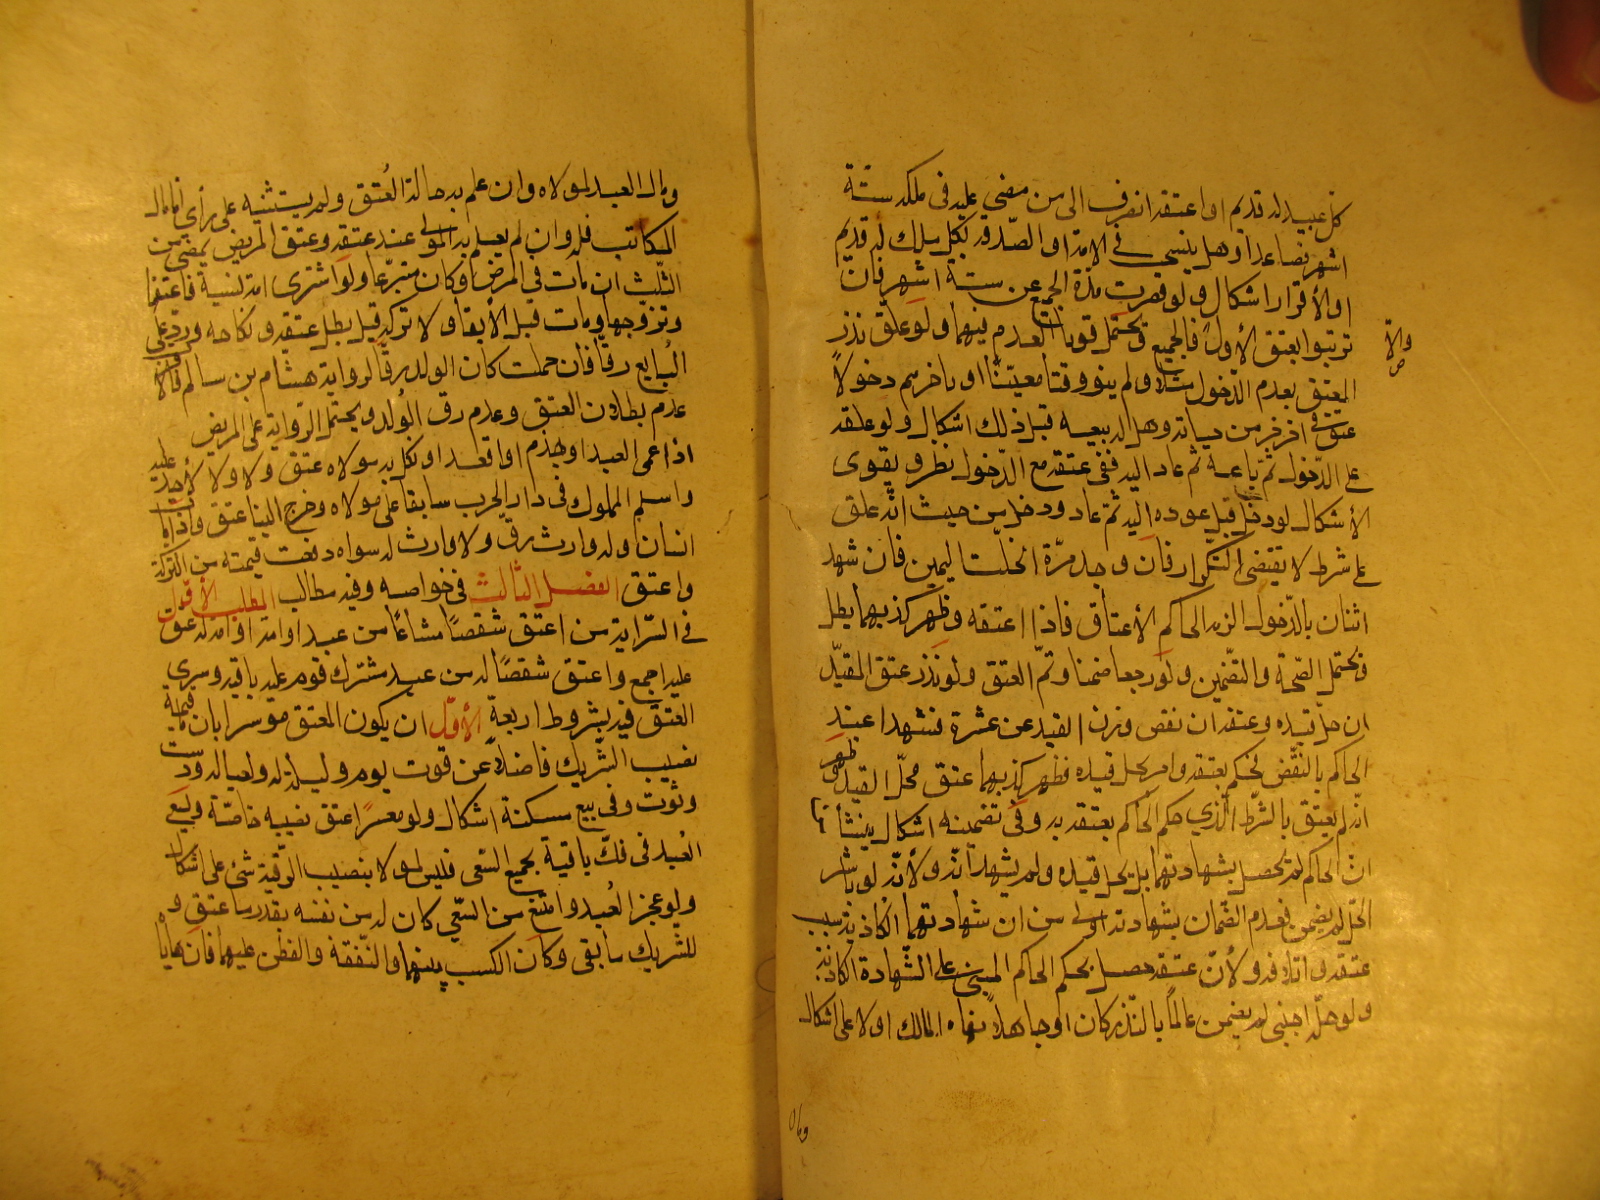 كل عبد له قديم او اعتقه انصرف الى من مضى عليه في ملكه ستّة
اشهر فصاعدا وهل ينسحب في الامة او الصدقة بكل ملك له قديم
او الأقرار اشكال ولو قصرت مدة الجميع عن ستة اشهر فان
ترتبوا اعتق الأول فالجميع يحتمل قويا العدم فيهما ولو علق نذر
والّا
المعتق بعدم الدّخول مثلا ولم ينو وقتا معيّنا او باخرهم دخولاً
عتق في اخر جزء من حياته وهل له بيعه قبل ذلك اشكال ولو علقه
على الدّخول ثمّ باعه ثم عاد اليه ففي عتقه مع الدّخول نظر ويقوى
الأشكال لو دخل قبل عوده اليه ثم عاد ودخل من حيث انّه علق
على شرط لا يقتضي التكرار فان وجد مرّة انحلّت اليمين فان شهد
اثنان بالدّخول الزمه الحاكم الأعتاق فاذا اعتقه وظهر كذبهما بطل
ويحتمل الصحّة والتضمين ولو رجعا ضمنا وتمّ العتق ولو نذر عتق المقيّد
ان حل قيده وعتقه ان نقص وزن القيد عن عشرة فشهدا عند
الحاكم بالنّقص فحكم بعتقه وامر بحل قيده فظهر كذبهما عتق بحلّ القيد وظهر
انّه لم يعتق بالشرط الّذي حكم الحاكم بعتقه به وفي تضمينه اشكال ينشأ
انّ الحكم لم يحصل بشهادتهما بل بحل قيده ولم يشهدا به ولأنّه لو باشر
الحلّ لم يضمن فعدم الضّمان بشهادته اولى من ان شهادتهما الكاذبة سبب
عتقه واتلافه ولأنّ عتقه حصل بحكم الحاكم المبني على الشّهادة الكاذبة
ولو حلّه اجنبي لم يضمن عالماً بالنّذر كان او جاهلاً نهاه المالك اولا على اشكال
ومال العبد لمولاه وان علم به حالة العُتق ولم يستثنه على رأي امّا مال
المكاتب فله وان لم يعلم به المولى عند عتقه وعتق المريض يمضي من
الثّلث ان مات في المرض وكان متبرّعا ولو اشترى امة نسية فاعتقها
وتزوجها ومات قبل الأيفاء ولا تركة قيل بطل عتقه ونكاحه وردّ على
البايع رقّا فان حملت كان الولد رقّا لرواية هشام بن سالم والأقوى
عدم بطلان العتق وعدم رق الولد ويحتمل الرّواية على المريض
اذا عمى العبد او جذم او اقعد او نكل به مولاه عتق ولا ولاء لأحد عليه
واسلم المملوك في دار الحرب سابقا على مولاه وخرج الينا عتق واذا مات
انسان وله وارث رقّ ولا وارث له سواه دفعت قيمته من التركة
واعتق الفصل الثالث في خواصه وفيه مطالب المطلب الأوّل
في السّراية من اعتق شقصاً مشاعاً من عبده او امته عتق
عليه اجمع واعتق شقصاً له من عبد مشترك قوم عليه باقيه وسرى
العتق فيه بشروط اربعة الأوّل ان يكون المعتق موسرا بان قيمة
نصيب الشّريك فاضلا عن قوت يوم وليلة له ولعياله ودست
وثوب وفي بيع مسكنه اشكال ولو معسراً عتق نصيبه خاصّة وليسع
العبد في فكّ باقيه بجميع السّعى فليس لمولاه بنصيب الرّقية شئ على اشكال
ولو عجز العُبد وامتنع من السّعي كان له من نفسه بقدر ما عتق و
للشريك ما بقى وكان الكسب بينهما والنّفقة والفطن عليهما فان هايا